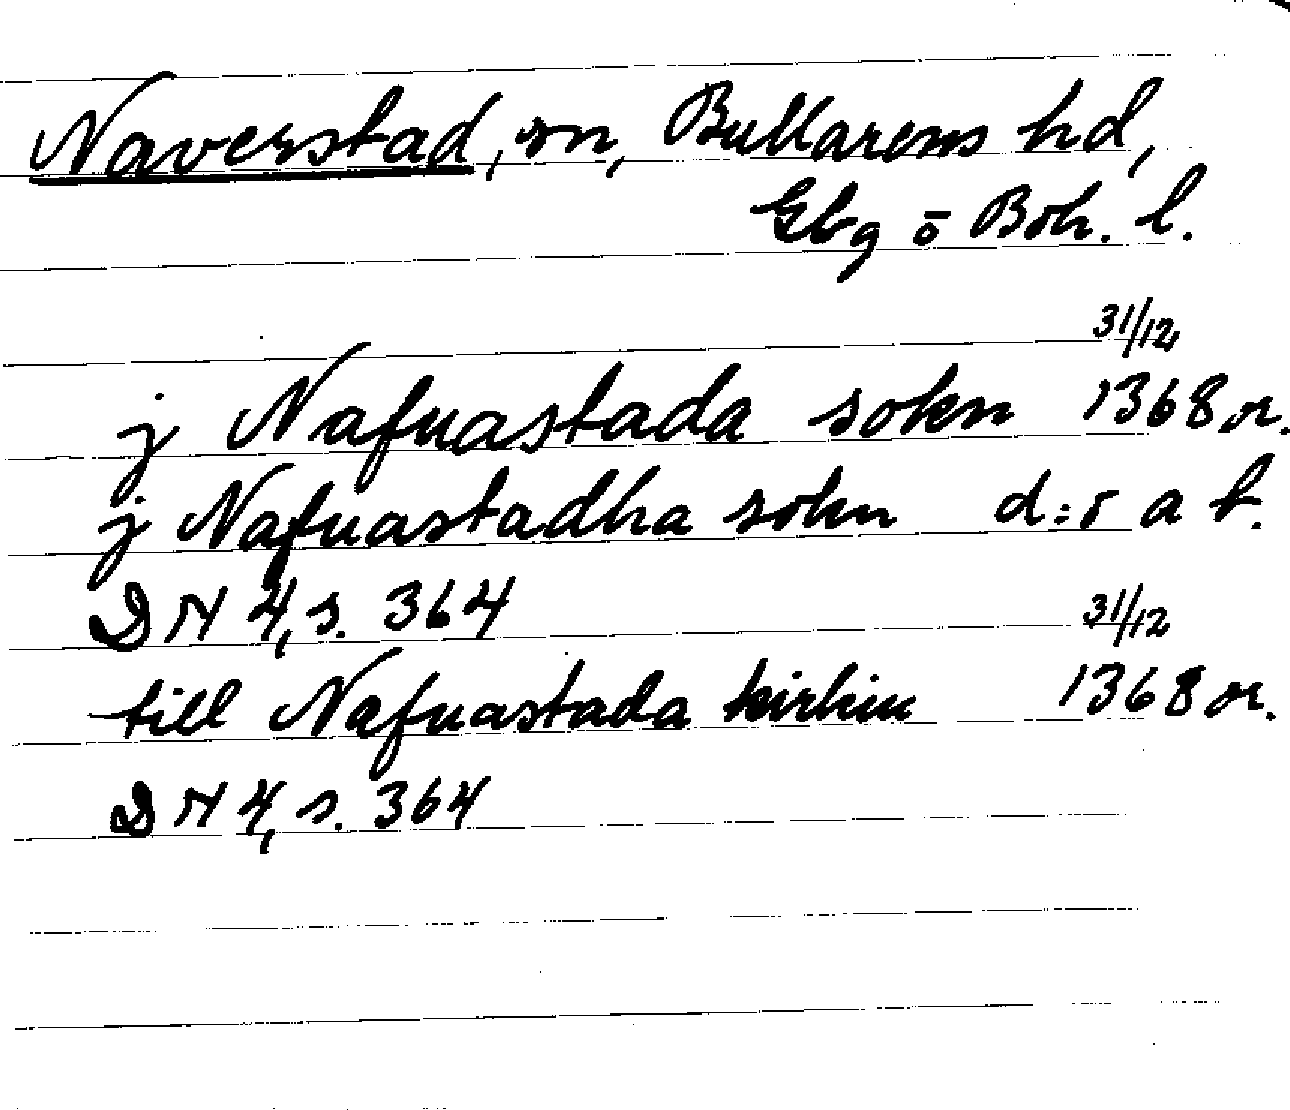 Naverstad, sn, Bullarens hd,
Gbg o Boh. l.
31/12
j Nafuastada sokn 1368 or.
j Nafuastadha sokn d:o a b.
DN 4, s. 364
31/12
till Nafuastada kirkiu 1368 or.
DN 4, s. 364